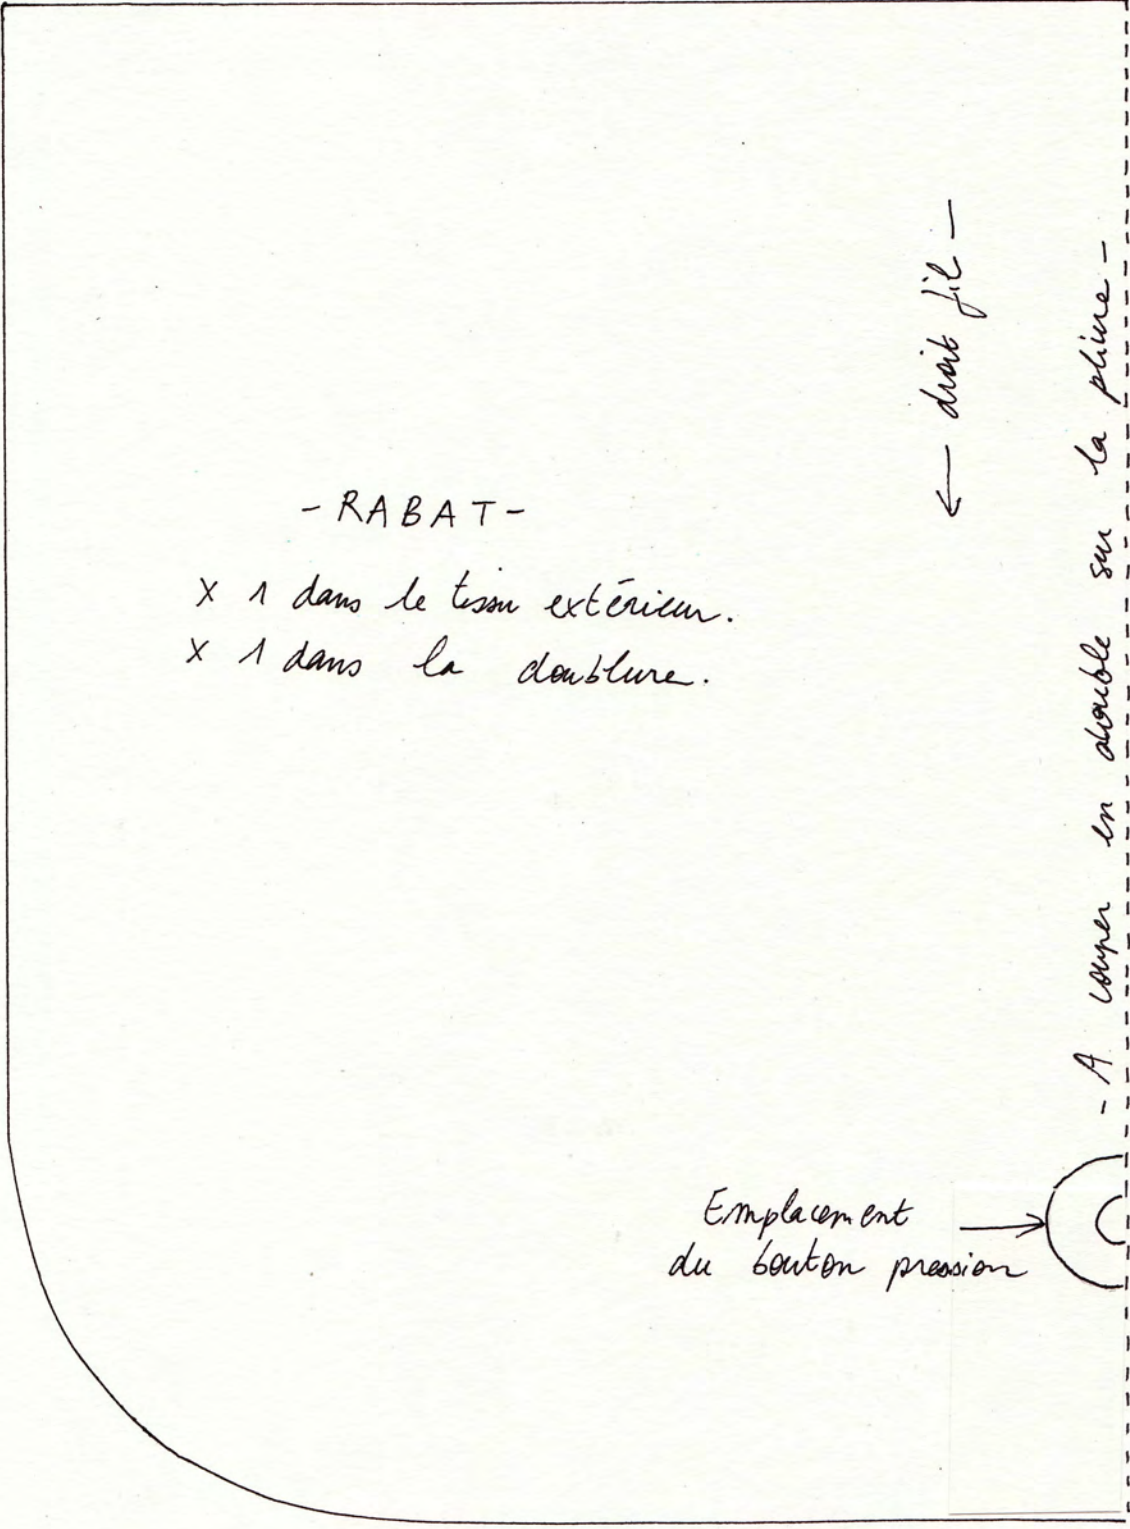 - RABAT -
x 1 dans le tissu extérieur.
x 1 dans la doublure.
← droit fil -
- A couper en double sur la pliure -
Emplacement
du bouton pression